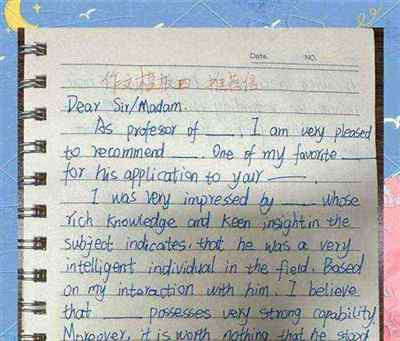 Date.      NO.
作文模板四：推荐信
Dear Sir/Madam.
As profesor of ____, I am very pleased
to recommend ____. One of my favorite ____
for his application to your ____.
I was very impressed by ____ whose
rich knowledge and keen insight in the
subject indicates, that he was a very
intelligent individual in the field. Based
on my interaction with him, I believe
that ____ possesses very strong capability.
Moreover, it is worth nothing that he stood